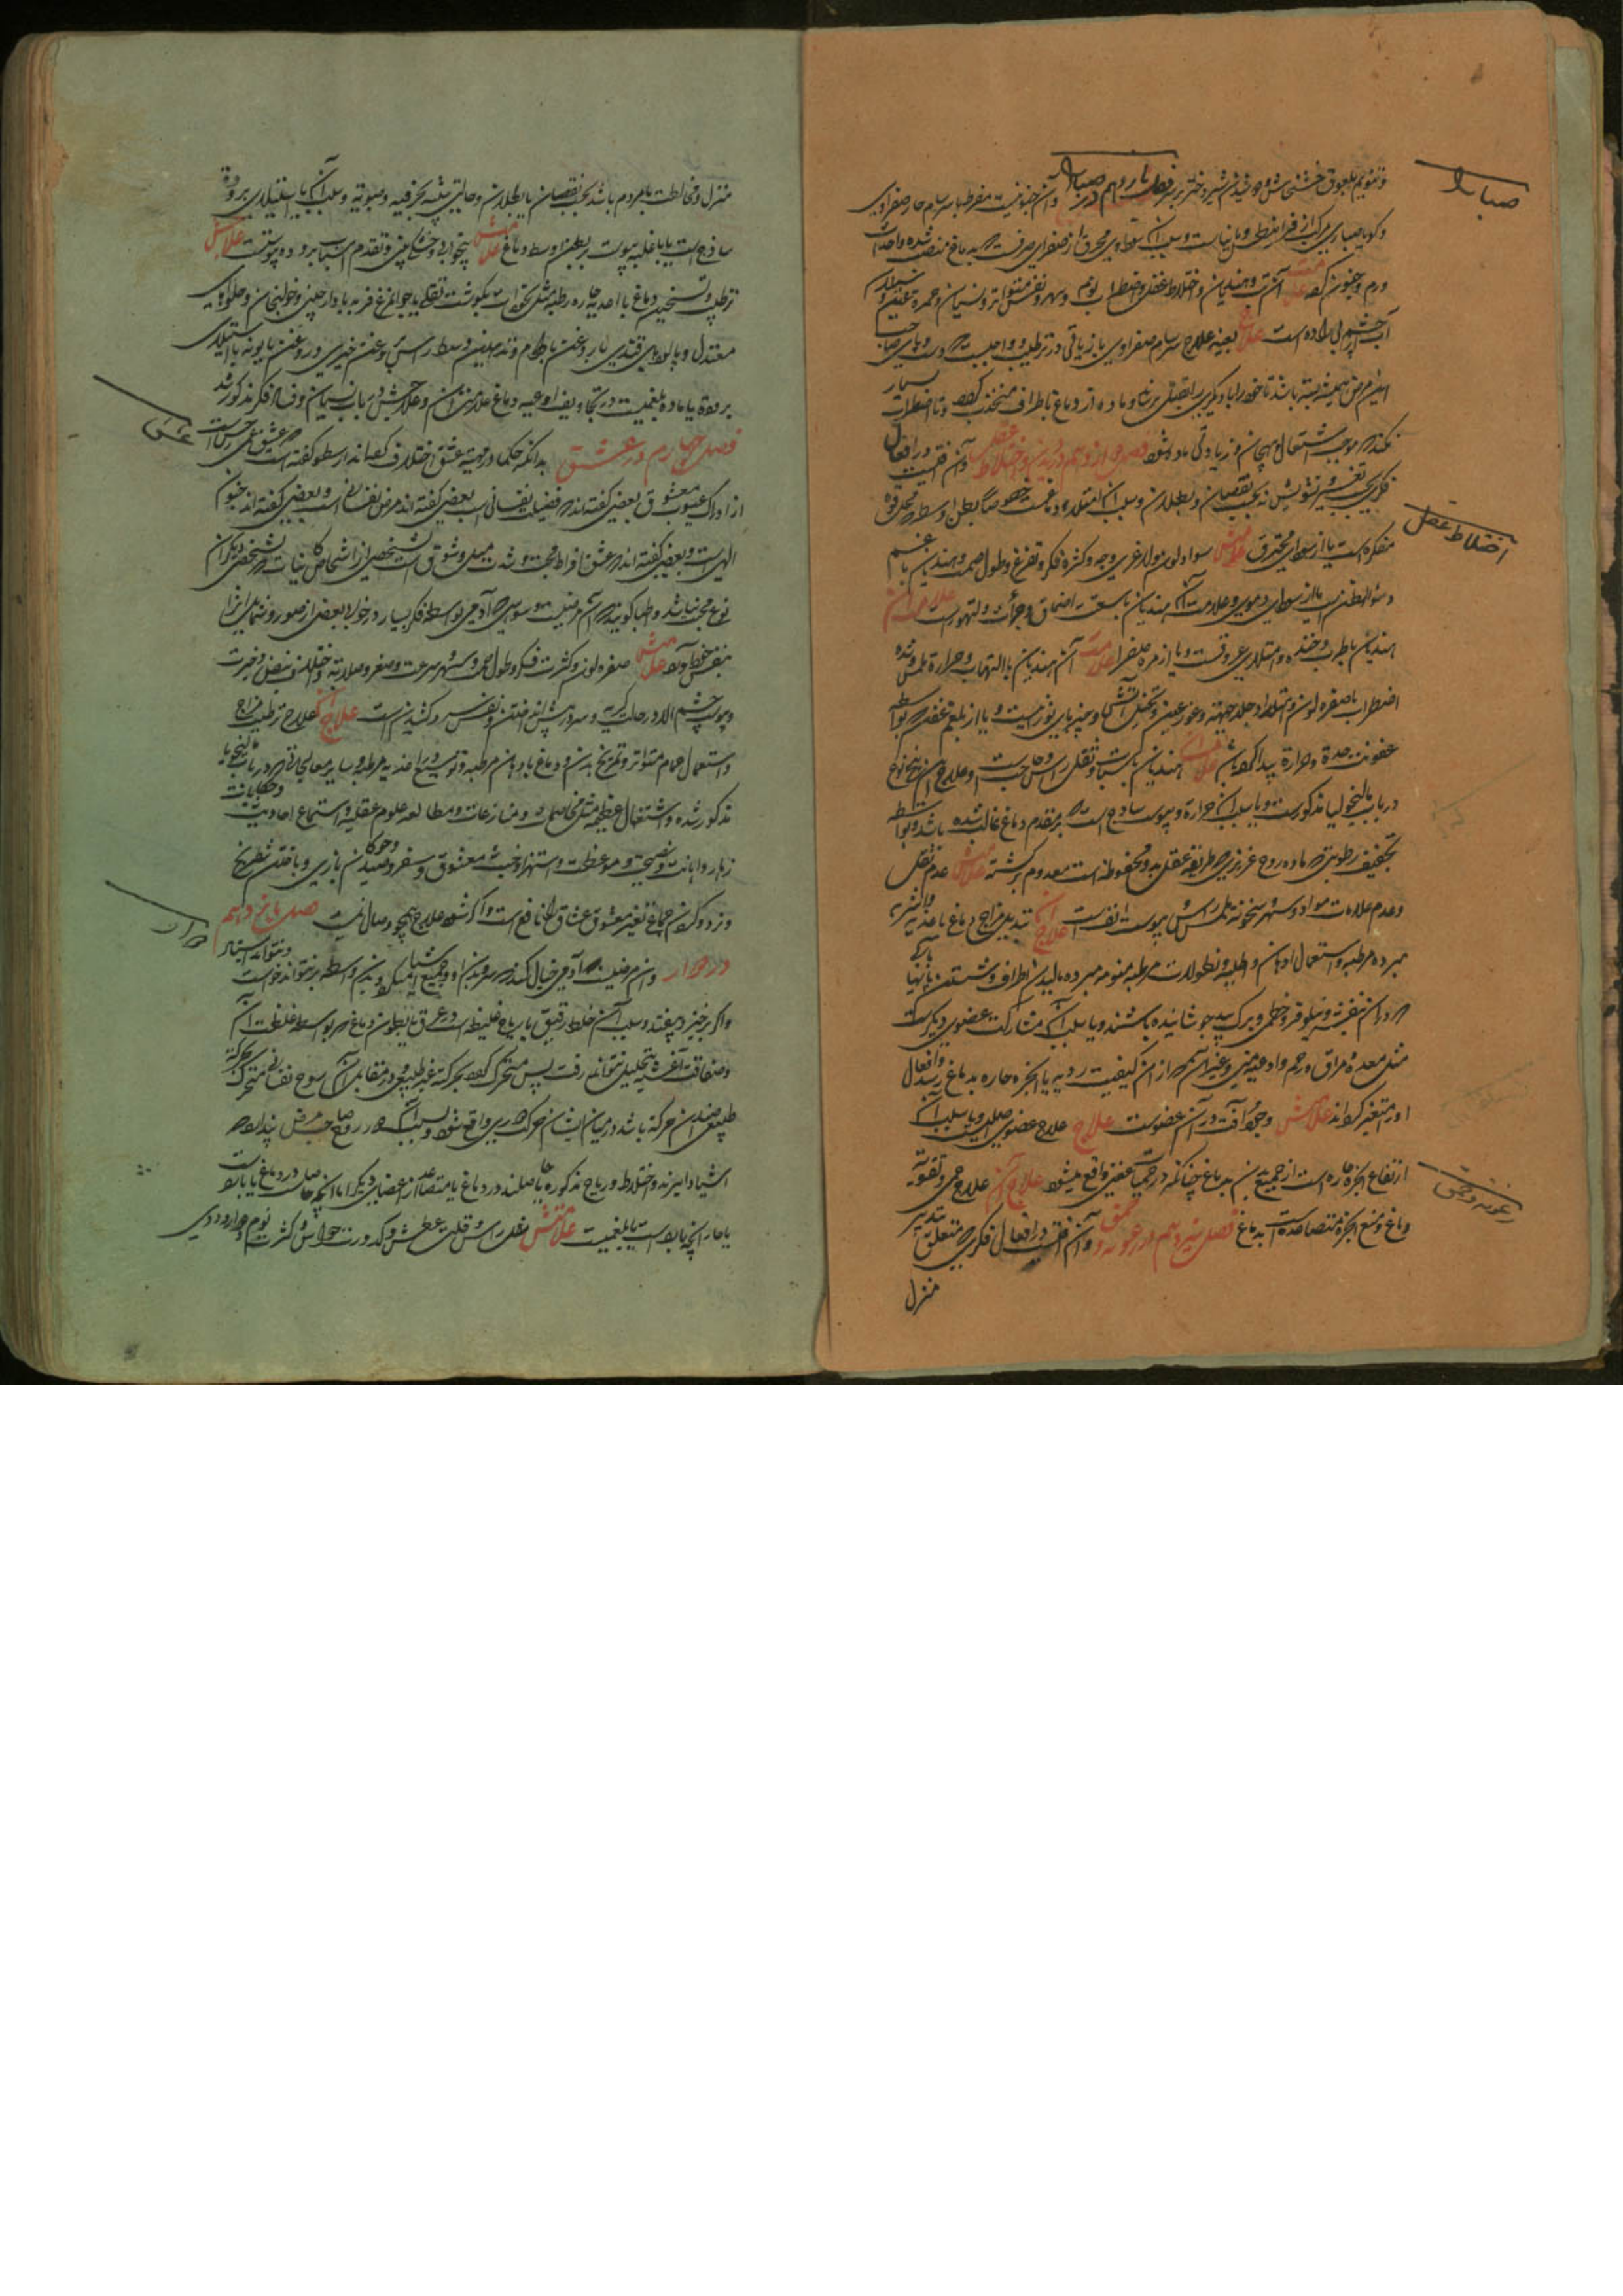 صبارا
و تنویم بلعوق خشخاش و دوشیدن شیر دختر بر سر فصل یازدهم در صبارا و آن جنونیست مفرط با سرسام حار صفراوی
و گویا صباری مرکب از قرانیطس و مانیاست و سبب آن سوداوی محرق از صفرای صرفست که بدماغ منصب شده و احداث
ورم و جنون کند علامتش آن تب و هذیان و اختلاط عقل و اضطراب نوم و سهر و نفس متواتر و نسیان و حمره عینین و سیلان
آب چشم بی اراده است علاجش بعینه علاج سرسام صفراوی با زیادتی در ترطیب و واجبست که دست و پای صاحب
این مرض همیشه بسته باشند تا خود را یا دیگری را بقتل نرساند و ماده از دماغ باطراف منجذب کند و تا اضطراب بسیار
نکند که موجب اشتعال و هیجان و زیادتی ماده شود فصل دوازدهم در هذیان و اختلاط عقل و آن آفتیست در افعال
فکری بحسب تغیر و تشویش نه بحسب نقصان و بطلان و سبب آن امتلاء دماغست خصوصا بطن اوسط که محل قوه
اختلاط عقل
مفکره است یا از سودای محترق علامتش سواد لون و لاغری وجه و کثرة فکر و تفزع و طول صمت و هذیان با غم
و سوء الظن یا از سودای دموی و علامت آن هذیان با سبعیت و اضحاک و جرأت و تهور است علامت آن
هذیان با طرب و خنده و امتلای عروقست و یا از مره صفرا علامت آن هذیان با التهاب و حرارة ملمس و شده
اضطراب با صفره لون و امتداد جلد جبهه و غور عینین و تخیل آتشها و چیزهای نورانیست و یا از بلغم عفن که بواسطه
عفونت حدة و حرارة پیدا کرده باشد علامت آن هذیان با سبات و ثقل راس و حاجب است و علاج آن پنج نوع
در باب مالیخولیا مذکورست و یا سبب آن حرارة و یبوست ساذج است که بر مقدم دماغ غالب شده باشد و بواسطه
تجفیف رطوبتی که ماده روح غریزی که طریقه عقل بدو محفوظه است معدوم گشته علامتش عدم ثقل
و عدم علامات مواد و سهر و سخونت ملمس راس و یبوست انفست علاج آن تبدیل مزاج دماغ باغذیه و اشربه
مبرده مرطبه و استعمال ادهان و اطلیه و نطولات مرطبه منومه مبرده و مالیدن اطراف و شستن پایها بآبی
که در آن بنفشه و نیلوفر و خطمی و برگ بید جوشانیده باشند و یا سبب آن مشارکت عضوی دیگرست
مثل معده و مراق و رحم و اوعیه منی و غیر آن که از آن کیفیت ردیه یا ابخره حاره بدماغ رسد و افعال
او را متغیر گرداند علامتش وجود آفت در آن عضوست علاج علاج عضو اصلیست و یا سبب آن
ارتفاع ابخره حاره است از جمیع بدن بدماغ چنانکه در حمیات عفنی واقع میشود علاج آن علاج حمی و تقویه
رعونه و حمق
دماغ و منع ابخره متصاعده است بدماغ فصل سیزدهم در رعونه و حمق و آن آفتیست در افعال فکری که متعلق بتدبیر
منزل
منزل و مخالطت با مردم باشد بحسب نقصان یا بطلان و حالتی شبیه بخرفیه و صبوتیه و سبب آن یا استیلای برودة
ساذج است یا با غلبه یبوست بر بطن اوسط دماغ علامتش بیخوابی و خشکی بینی و تقدم اسباب برودة و یبوست علاجش
ترطیب و تسخین دماغ با اغذیه حاره رطبه مثل نخوداب بگوشت بقلی یا جوامرغ فربه با دارچینی و خولنجان و حلواهای
معتدل و پالودهای قندی با روغن بادام و تدهین وسط راس بروغن خیری و روغن بابونه یا استیلای
برودة با ماده بلغمیست در تجاویف اوعیه دماغ علامت آن و علاجش در باب نسیان و فساد فکر مذکور شد
عشق
فصل چهاردهم در عشق بدانکه حکما در مهیت عشق اختلاف کرده اند ارسطو گفته است که عشق عمی حس است
از ادراک عیوب معشوق بعضی گفته اند که فضیلت نفسانی است بعضی گفته اند مرض نفسانی است و بعضی گفته اند جنون
الهی است و بعضی گفته اند که عشق افراط محبت و شدت میل و شوق است بشخصی از اشخاص کائنات که بشخصی دیگر از آن
نوع محب نباشد و اطبا گویند که آن مرضیست وسواسی که آدمی بواسطه فکر بسیار در خوبی بعضی از صور و شمایل از برای
نفس خود آورد علامتش صفره لون و کثرت فکر و طول صمت و سهر و سرعت و صغر و صلابت و اختلاف نبض و حیرت
و یبوست چشم الا در حالت گریه و سر در پیش انداختن و نفس سرد کشیدن است علاج آن علاج ترطیب مزاج
و استعمال حمام متواتر و تمریخ بدن و دماغ بادهان مرطبه و توسیع اغذیه مرطبه و سایر معالجاتی که در باب مالیخولیا
مذکور شده و اشتغال عظیمه مثل مخاصمات و منازعات و مطالعه علوم عقلیه و استماع احادیث و حکایات
زهاد و اهانت و نصیحت و موعظت و استهزا و خبث معشوق و سفر و صید و بازی و باختن شطرنج
و نرد و کردن جماع بغیر معشوق عشاق را نافع است و اگر نشود علاج هیچ جز وصال نیست فصل پانزدهم
دوار
در دوار و آن مرضیست که آدمی خیال کند که سر و بدن او و جمیع اشیا میگردند و بدین واسطه نتواند خواست و نتواند ایستاد
و اگر برخیزد بیفتد و سبب آن خلط رقیق یا ریاح غلیظه است در عروق یا بطون دماغ که بواسطه غلظت آن
و صفاقت اغشیه بتحلیل نتواند رفت پس متحرک گردد بحرکة غیر طبیعی و در مقابل آن روح نفسانی متحرک بحرکة
طبیعی ضد آن حرکة باشد در میان ایشان حرکت دوری واقع شود و بسبب آنکه در روح صاحب مرض پندارد که
اشیا دایرند و اخلاط و ریاح مذکوره یا حاصلند در دماغ یا متصاعد از اعضای دیگر اما آنچه حاصلست در دماغ یا باردست
یا حار آنچه باردست یا بلغمیست علامتش ثقل راس و قلت عطش و کدورت حواس و کثرت نوم و دوار و دردی